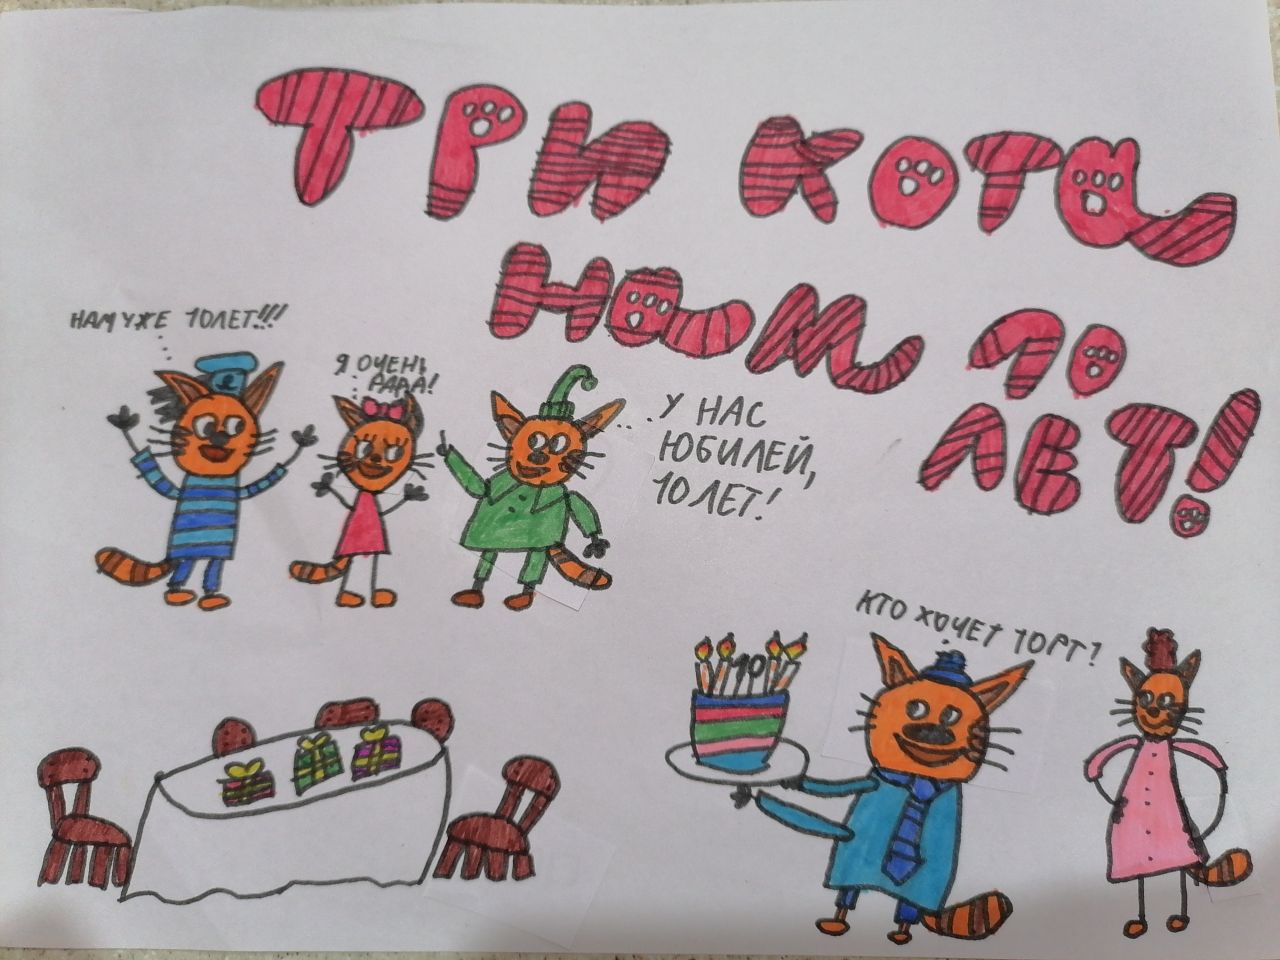 ТРИ КОТА
НАМ 10
ЛЕТ!
НАМ УЖЕ 10 ЛЕТ!!!
Я ОЧЕНЬ
РАДА!
У НАС
ЮБИЛЕЙ,
10 ЛЕТ!
КТО ХОЧЕТ ТОРТ?
10